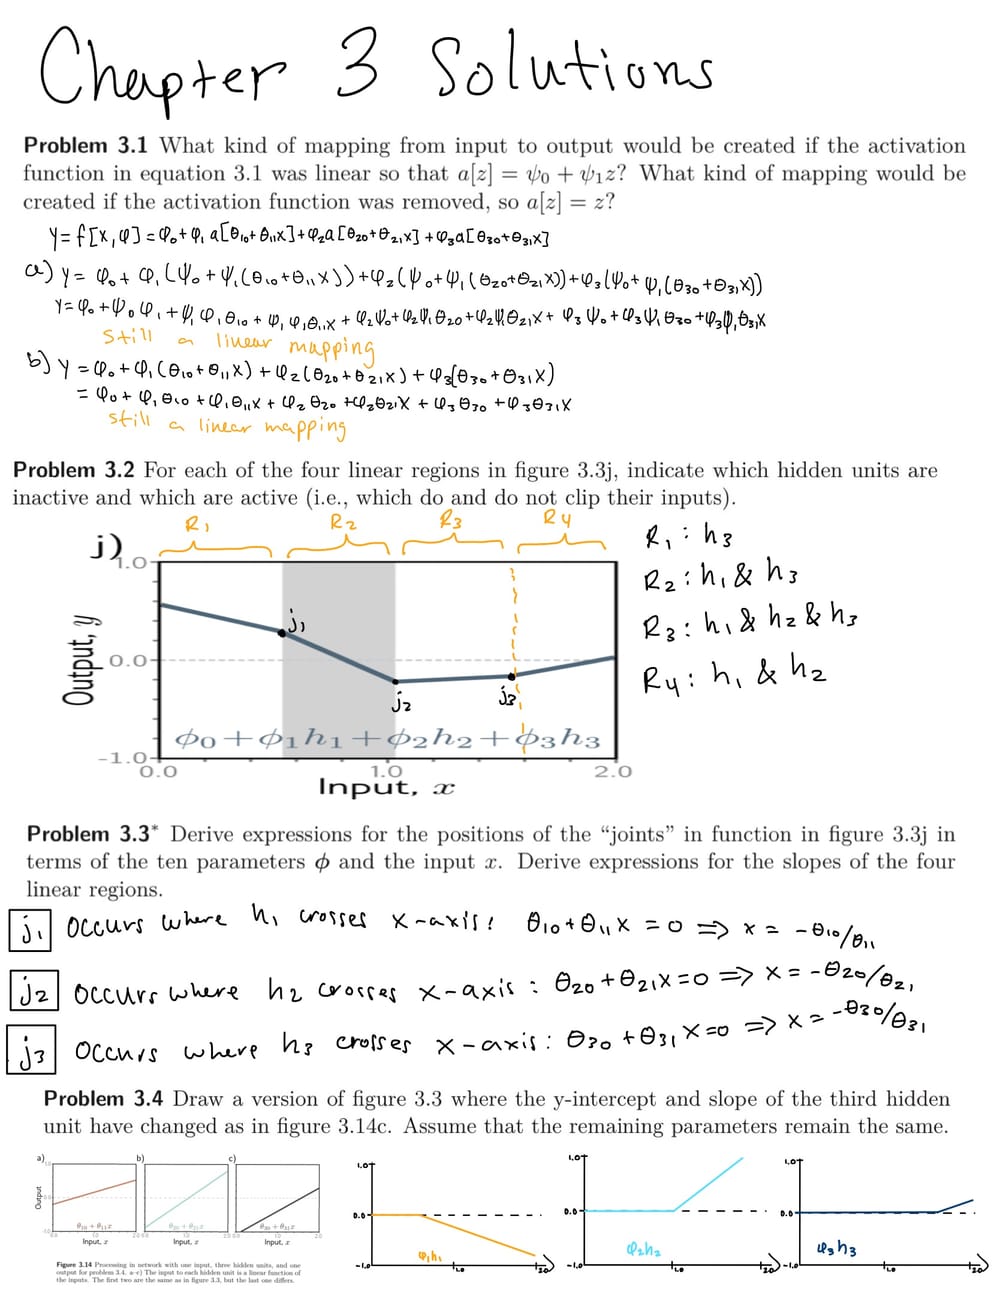 Chapter 3 Solutions
Problem 3.1 What kind of mapping from input to output would be created if the activation
function in equation 3.1 was linear so that a[z] = ψ₀ + ψ₁z? What kind of mapping would be
created if the activation function was removed, so a[z] = z?
y = f[x, φ] = φ₀ + φ₁ a[θ₁₀+θ₁₁x] + φ₂a[θ₂₀+θ₂₁x] + φ₃a[θ₃₀+θ₃₁x]
a) y = φ₀ + φ₁(ψ₀ + ψ₁(θ₁₀+θ₁₁x)) + φ₂(ψ₀+ψ₁(θ₂₀+θ₂₁x)) + φ₃(ψ₀+ψ₁(θ₃₀+θ₃₁x))
y = φ₀ + ψ₀φ₁ + ψ₁φ₁θ₁₀ + ψ₁φ₁θ₁₁x + φ₂ψ₀ + φ₂ψ₁θ₂₀ + φ₂ψ₁θ₂₁x + φ₃ψ₀ + φ₃ψ₁θ₃₀ + φ₃ψ₁θ₃₁x
still a linear mapping
b) y = φ₀ + φ₁(θ₁₀+θ₁₁x) + φ₂(θ₂₀+θ₂₁x) + φ₃(θ₃₀+θ₃₁x)
= φ₀ + φ₁θ₁₀ + φ₁θ₁₁x + φ₂θ₂₀ + φ₂θ₂₁x + φ₃θ₃₀ + φ₃θ₃₁x
still a linear mapping
Problem 3.2 For each of the four linear regions in figure 3.3j, indicate which hidden units are
inactive and which are active (i.e., which do and do not clip their inputs).
R₁ R₂ R₃ R₄
j)
1.0
0.0
-1.0
Output, y
j₁
j₂
j₃
φ₀ + φ₁h₁ + φ₂h₂ + φ₃h₃
0.0 1.0 2.0
Input, x
R₁ : h₃
R₂ : h₁ & h₃
R₃ : h₁ & h₂ & h₃
R₄ : h₁ & h₂
Problem 3.3* Derive expressions for the positions of the “joints” in function in figure 3.3j in
terms of the ten parameters ϕ and the input x. Derive expressions for the slopes of the four
linear regions.
j₁ occurs where h₁ crosses x-axis: θ₁₀+θ₁₁x = 0 => x = -θ₁₀/θ₁₁
j₂ occurs where h₂ crosses x-axis : θ₂₀+θ₂₁x=0 => x = -θ₂₀/θ₂₁
j₃ occurs where h₃ crosses x-axis: θ₃₀+θ₃₁x=0 => x = -θ₃₀/θ₃₁
Problem 3.4 Draw a version of figure 3.3 where the y-intercept and slope of the third hidden
unit have changed as in figure 3.14c. Assume that the remaining parameters remain the same.
a) b) c)
1.0
0.0
-1.0
Output
θ₁₀ + θ₁₁x θ₂₀ + θ₂₁x θ₃₀ + θ₃₁x
0.0 1.0 2.0 0.0 1.0 2.0 0.0 1.0 2.0
Input, x Input, x Input, x
Figure 3.14 Processing in network with one input, three hidden units, and one
output for problem 3.4. a–c) The input to each hidden unit is a linear function of
the inputs. The first two are the same as in figure 3.3, but the last one differs.
1.0
0.0
-1.0
φ₁h₁
1.0 2.0
1.0
0.0
-1.0
φ₂h₂
1.0 2.0
1.0
0.0
-1.0
φ₃h₃
1.0 2.0